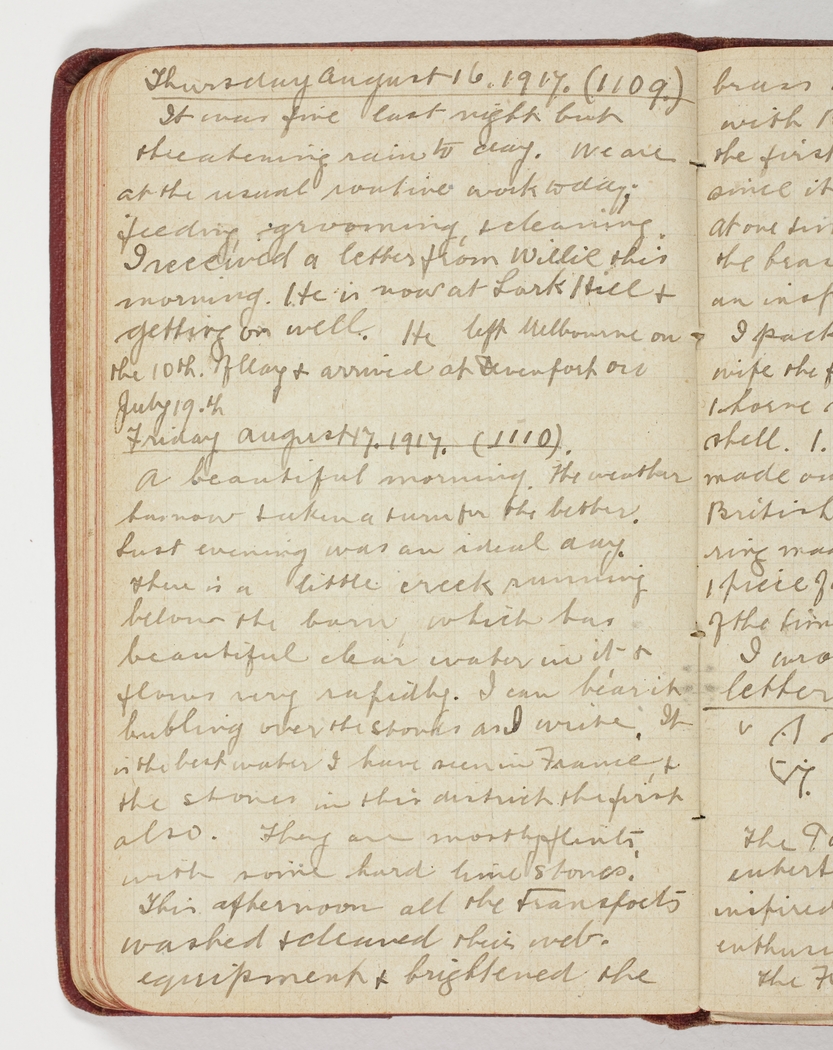 Thursday August 16. 1917. (1109)
It was fine last night but
threatening rain to day. We are
at the usual routine work today;
feeding, grooming, & cleaning.
I received a letter from Willie this
morning. He is now at Lark Hill &
getting on well. He left Melbourne on
the 10th. of May & arrived at Devenport on
July 19.th
Friday August 17. 1917. (1110).
A beautiful morning. The weather
has now taken a turn for the better.
Last evening was an ideal day.
There is a little creek running
below the barn, which has
beautiful clear water in it &
flows very rapidly. I can hear it
bubling over the stones as I write. It
is the best water I have seen in France, &
the stones in this district the first
also. They are mostly flints,
with some hard lime stones.
This afternoon all the Transports
washed & cleaned their web.
equipment & brightened the
brass
with
the first
since it
At one
the bras
an insp
I pack
wife the
1 horse
shell. 1.
made ou
British
ring mad
1 piece of
of the
I wro
letter
The
entert
inspired
enthusi
the